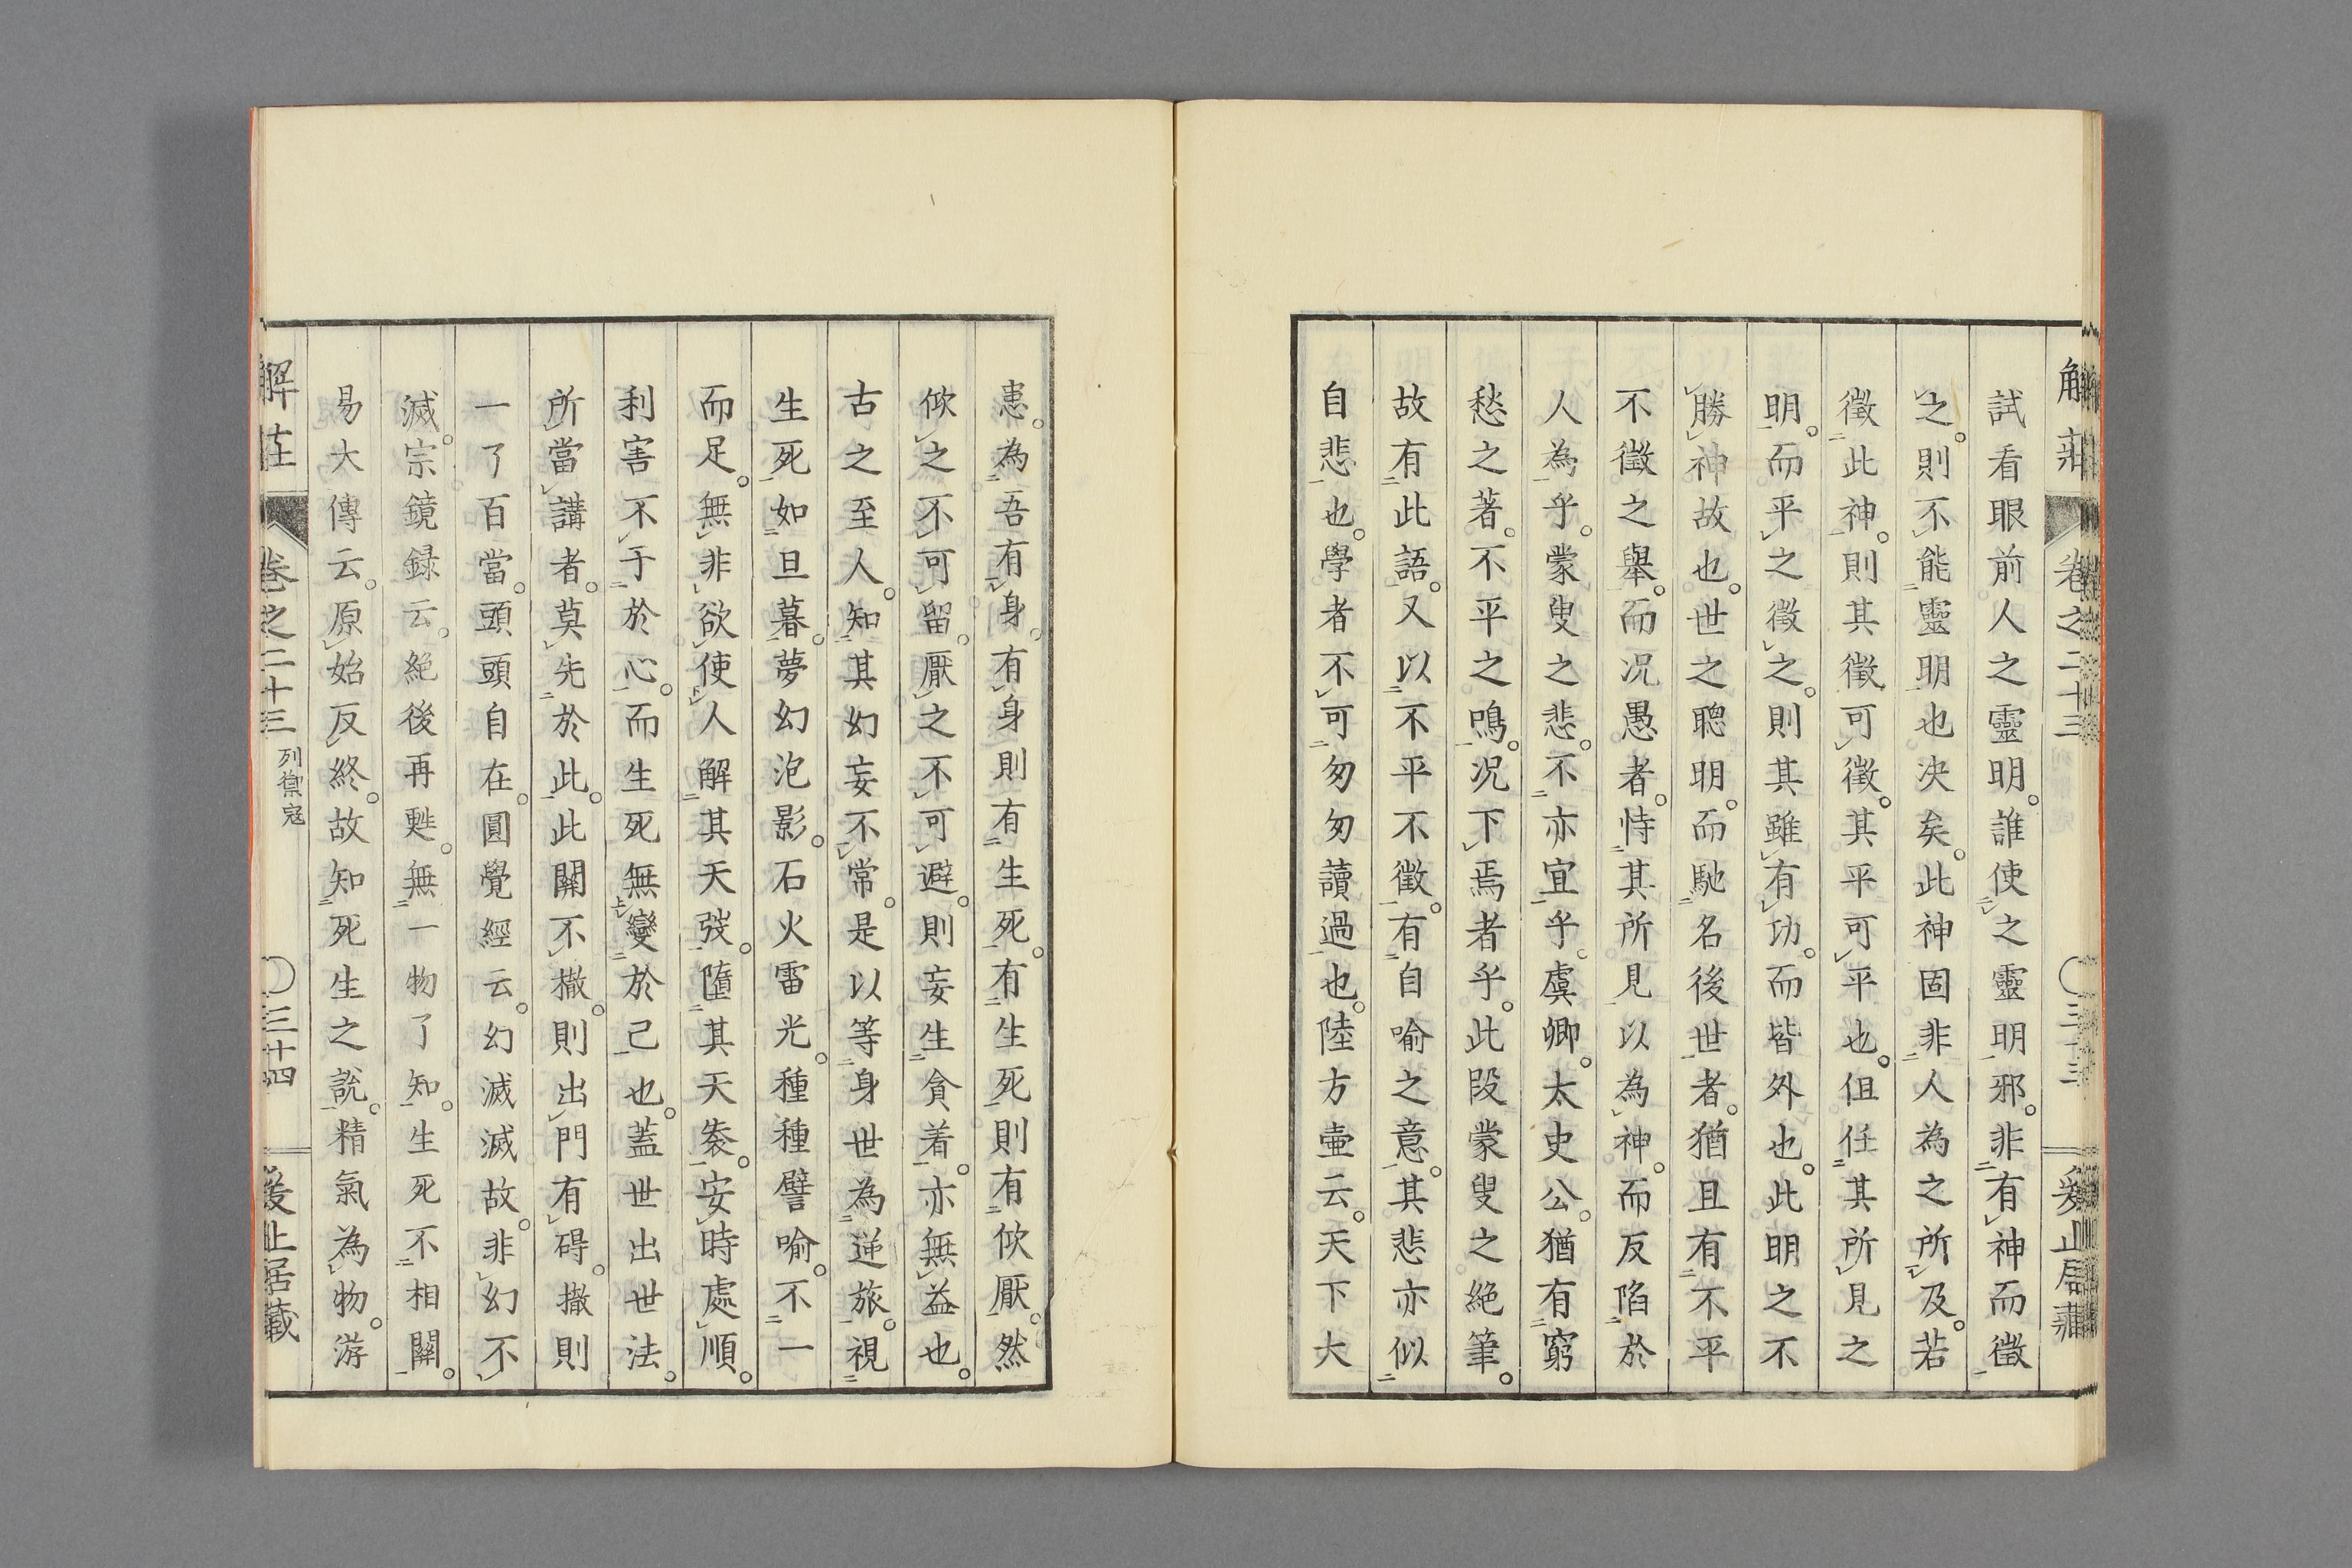 解莊 卷之二十三 〇三十三
試看眼前人之靈明。誰使之靈明邪。非有神而徵
之。則不能靈明也决矣。此神固非人為之所及。若
徵此神。則其徵可徵。其平可平也。但任其所見之
明。而平之徵之。則其雖有功。而皆外也。此明之不
勝神故也。世之聰明。而馳名後世者。猶且有不平
不徵之舉。而况愚者。恃其所見以為神。而反陷於
人為乎。蒙叟之悲。不亦宜乎。虞卿。太史公。猶有窮
愁之著。不平之鳴。况下焉者乎。此段蒙叟之絕筆。
故有此語。又以不平不徵。有自喻之意。其悲亦似
自悲也。學者不可匆匆讀過也。陸方壷云。天下大
患。為吾有身。有身則有生死。有生死則有忺厭。然
忺之不可留。厭之不可避。則妄生貪着。亦無益也。
古之至人。知其幻妄不常。是以等身世為逆旅。視
生死如旦暮。夢幻泡影。石火雷光。種種譬喻。不一
而足。無非欲使人解其天弢。墮其天袠。安時處順。
利害不干於心。而生死無變於己也。蓋世出世法。
所當講者。莫先於此。此關不撤。則出門有碍。撤則
一了百當。頭頭自在。圓覺經云。幻滅滅故。非幻不
滅。宗鏡録云。絕後再甦。無一物了知。生死不相關。
易大傳云。原始反終。故知死生之說。精氣為物。游
卷之二十三 列禦寇 〇三十四